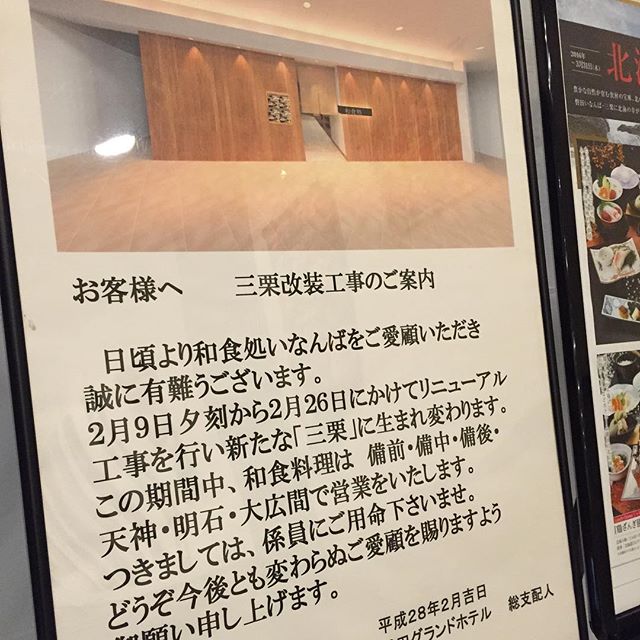 和食処
お客様へ　三栗改装工事のご案内
日頃より和食処いなんばをご愛顧いただき
誠に有難うございます。
2月9日夕刻から2月26日にかけてリニューアル
工事を行い新たな「三栗」に生まれ変わります。
この期間中、和食料理は　備前・備中・備後・
天神・明石・大広間で営業をいたします。
つきましては、係員にご用命下さいませ。
どうぞ今後とも変わらぬご愛顧を賜りますよう
願い申し上げます。
平成28年2月吉日
グランドホテル　総支配人
2016年
北